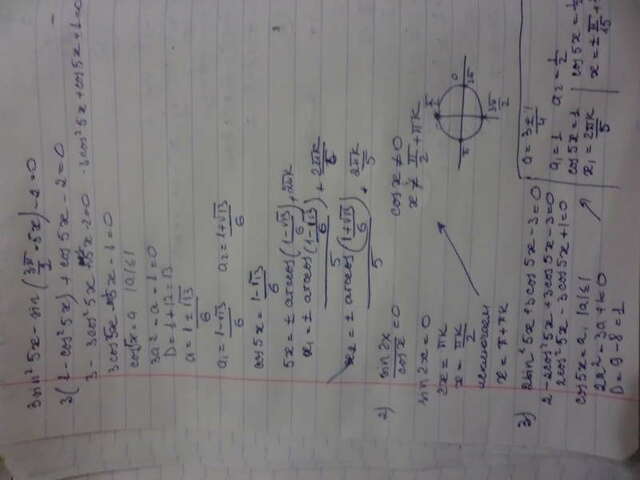 3sin²5x - sin(3π/2 - 5x) - 2 = 0
3(1 - cos²5x) + cos 5x - 2 = 0
3 - 3cos²5x - 2 = 0 -3cos²5x + cos5x + 1 = 0
3cos²5x - 1 = 0
cos5x = a |a| ≤ 1
3a² - a - 1 = 0
D = 1 + 12 = 13
a = 1 ± √13 / 6
a₁ = 1 - √13 / 6 a₂ = 1 + √13 / 6
cos 5x = 1 - √13 / 6
5x = ± arccos(1 - √13 / 6) + 2πk
x₁ = ± arccos(1 - √13 / 6) / 5 + 2πk / 5
x₂ = ± arccos(1 + √13 / 6) / 5 + 2πk / 5
2) sin 2x / cos x = 0 cos x ≠ 0
sin 2x = 0 x ≠ π/2 + πk
2x = πk
x = πk / 2
исключаем
x = π + πk
π/2 π 0 2π 3π/2
3) 2sin²5x + 3cos5x - 3 = 0
2 - 2cos²5x + 3cos5x - 3 = 0
2cos²5x - 3cos5x + 1 = 0
cos5x = a, |a| ≤ 1
2a² - 3a + 1 = 0
D = 9 - 8 = 1
a = 3 ± 1 / 4
a₁ = 1 a₂ = 1/2
cos5x = 1 cos5x = 1/2
x₁ = 2πk / 5 x = ± π/15 +